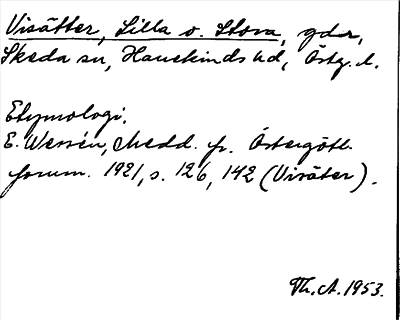 Visätter, Lilla o. Stora, gdr,
Skeda sn, Hanekinds hd, Östg. l.
Etymologi.
E. Wessén, Medd. fr. Östergötl.
fornm. 1921, s. 126, 142 (Visäter).
Th. A. 1953.